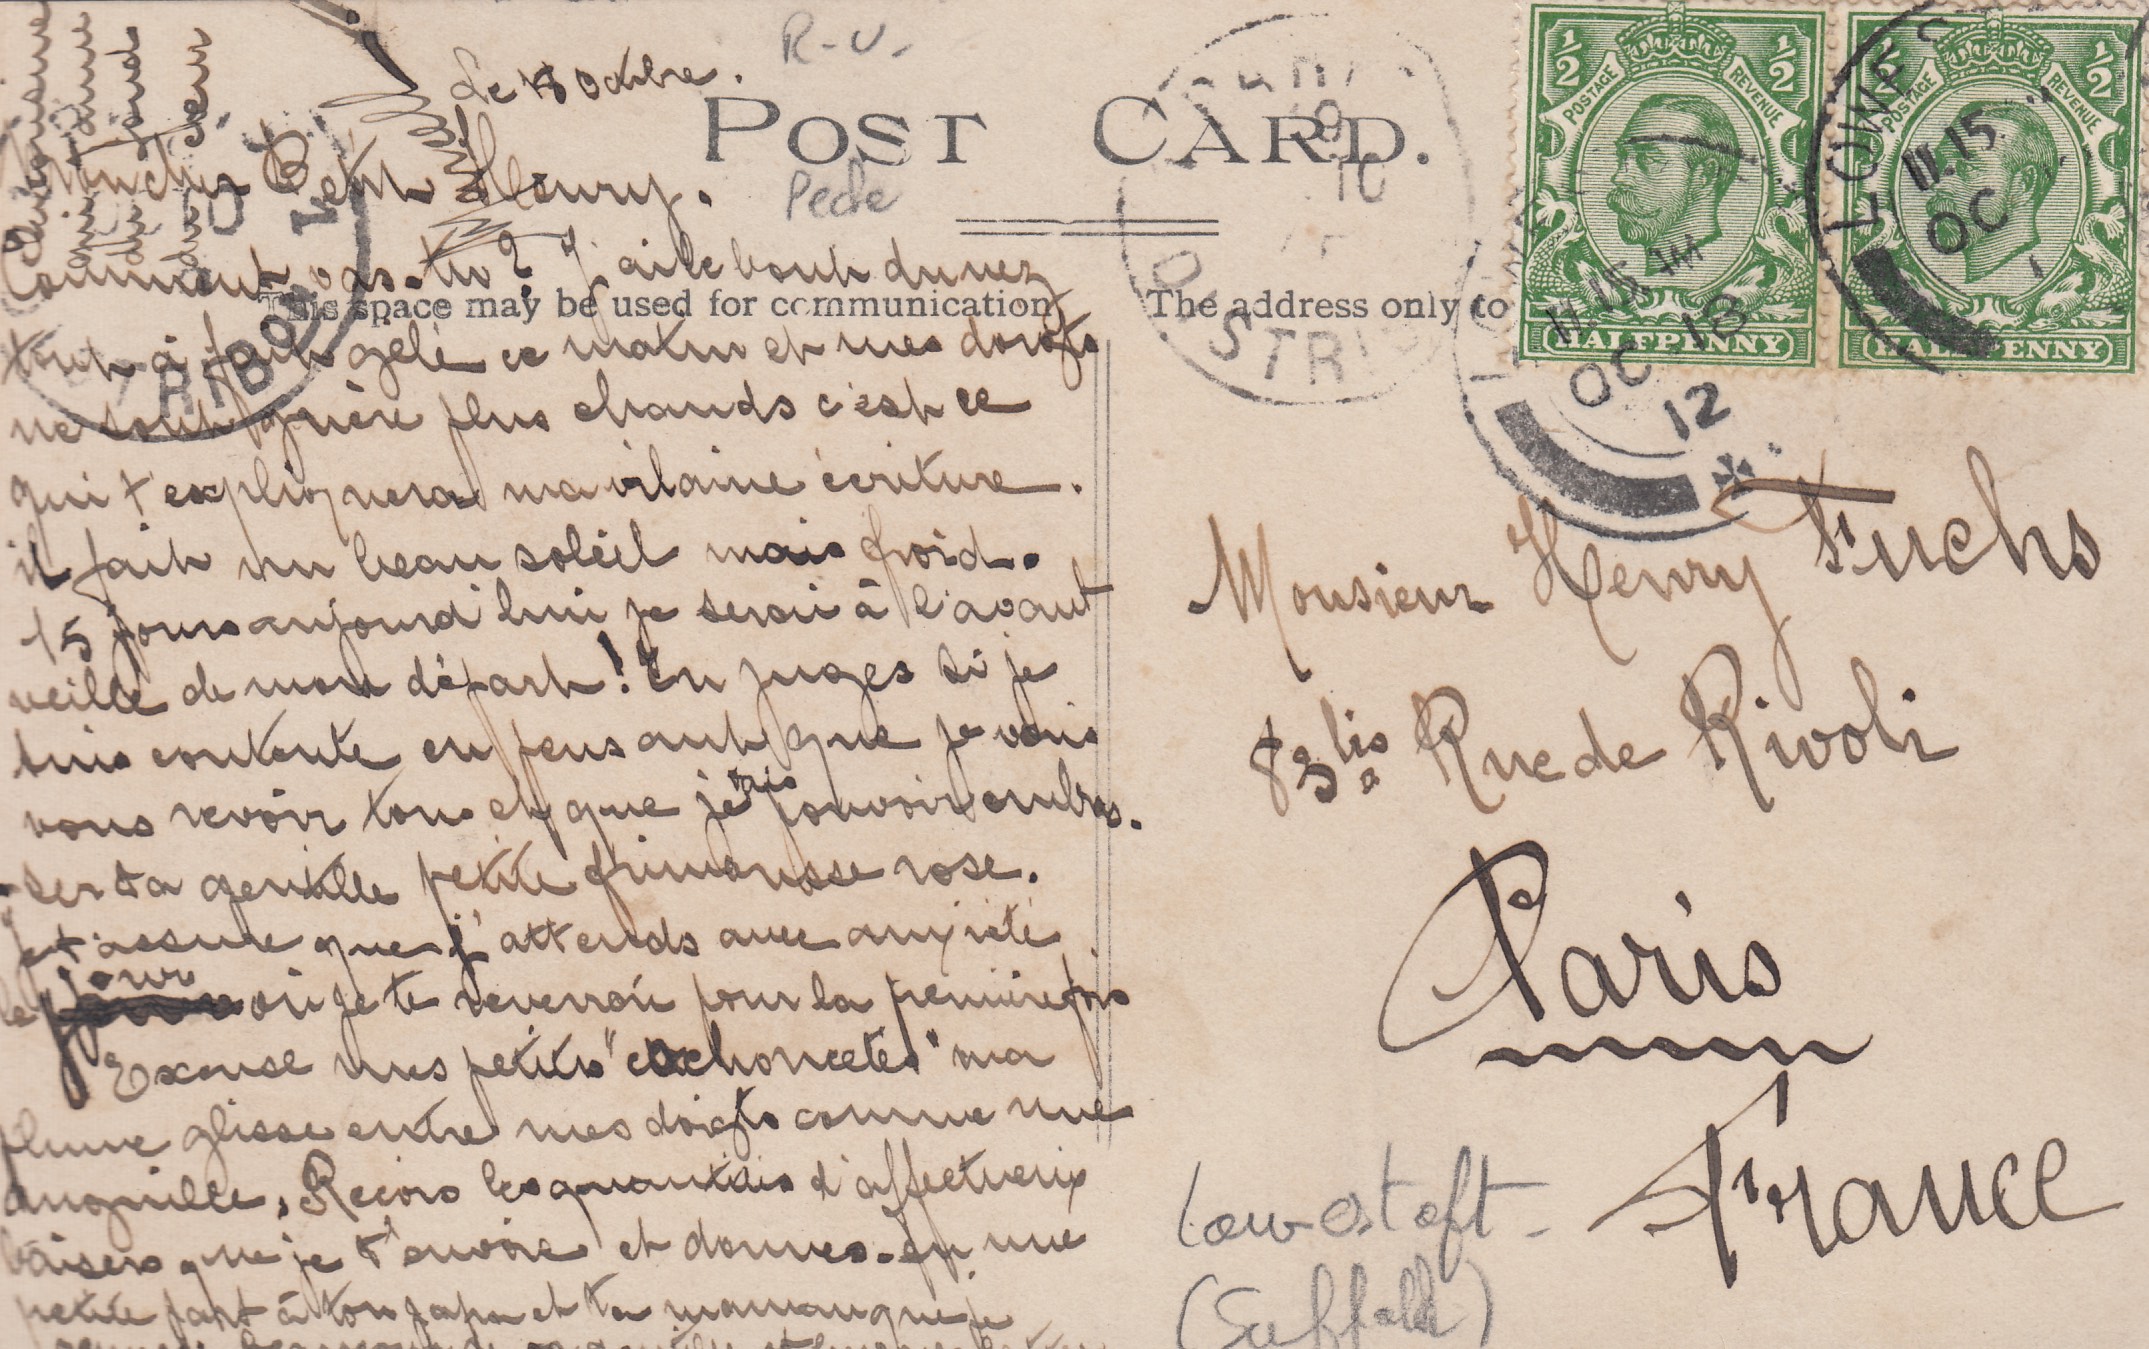 R-V-
Le 18 Octobre.
POST CARD.
Pede
Mon cher Petit Henry.
Comment vas-tu? J'ai le bout du nez
This space may be used for communication
The address only to
tout à fait gelé ce matin et mes doigts
ne sont guère plus chauds c'est ce
qui t'expliquera ma vilaine écriture.
il fait un beau soleil mais froid.
15 jours aujourd'hui je serai à l'avant
veille de mon départ! En juges si je
suis contente en pensant que je vais
vous revoir tous et que je vais pouvoir embras-
-ser ta gentille petite frimousse rose.
Je t'assure que j'attends avec anxiété
le jour où je te reverrai pour la première fois
Excuse mes petits "cochoncetés" ma
plume glisse entre mes doigts comme une
anguille. Reçois les quantités d'affectueux
baisers que je t'envoie et donnes-en une
petite part à ton papa et ta maman que je
POSTAGE REVENUE
1/2 1/2
HALFPENNY
POSTAGE REVENUE
1/2 1/2
HALFPENNY
11.15 AM
OC 18
12
LOWES
11.15
OC 1
DISTRI
TRIB
Monsieur Henry Fuchs
83 bis Rue de Rivoli
Paris
France
Lowestoft -
(Suffolk)